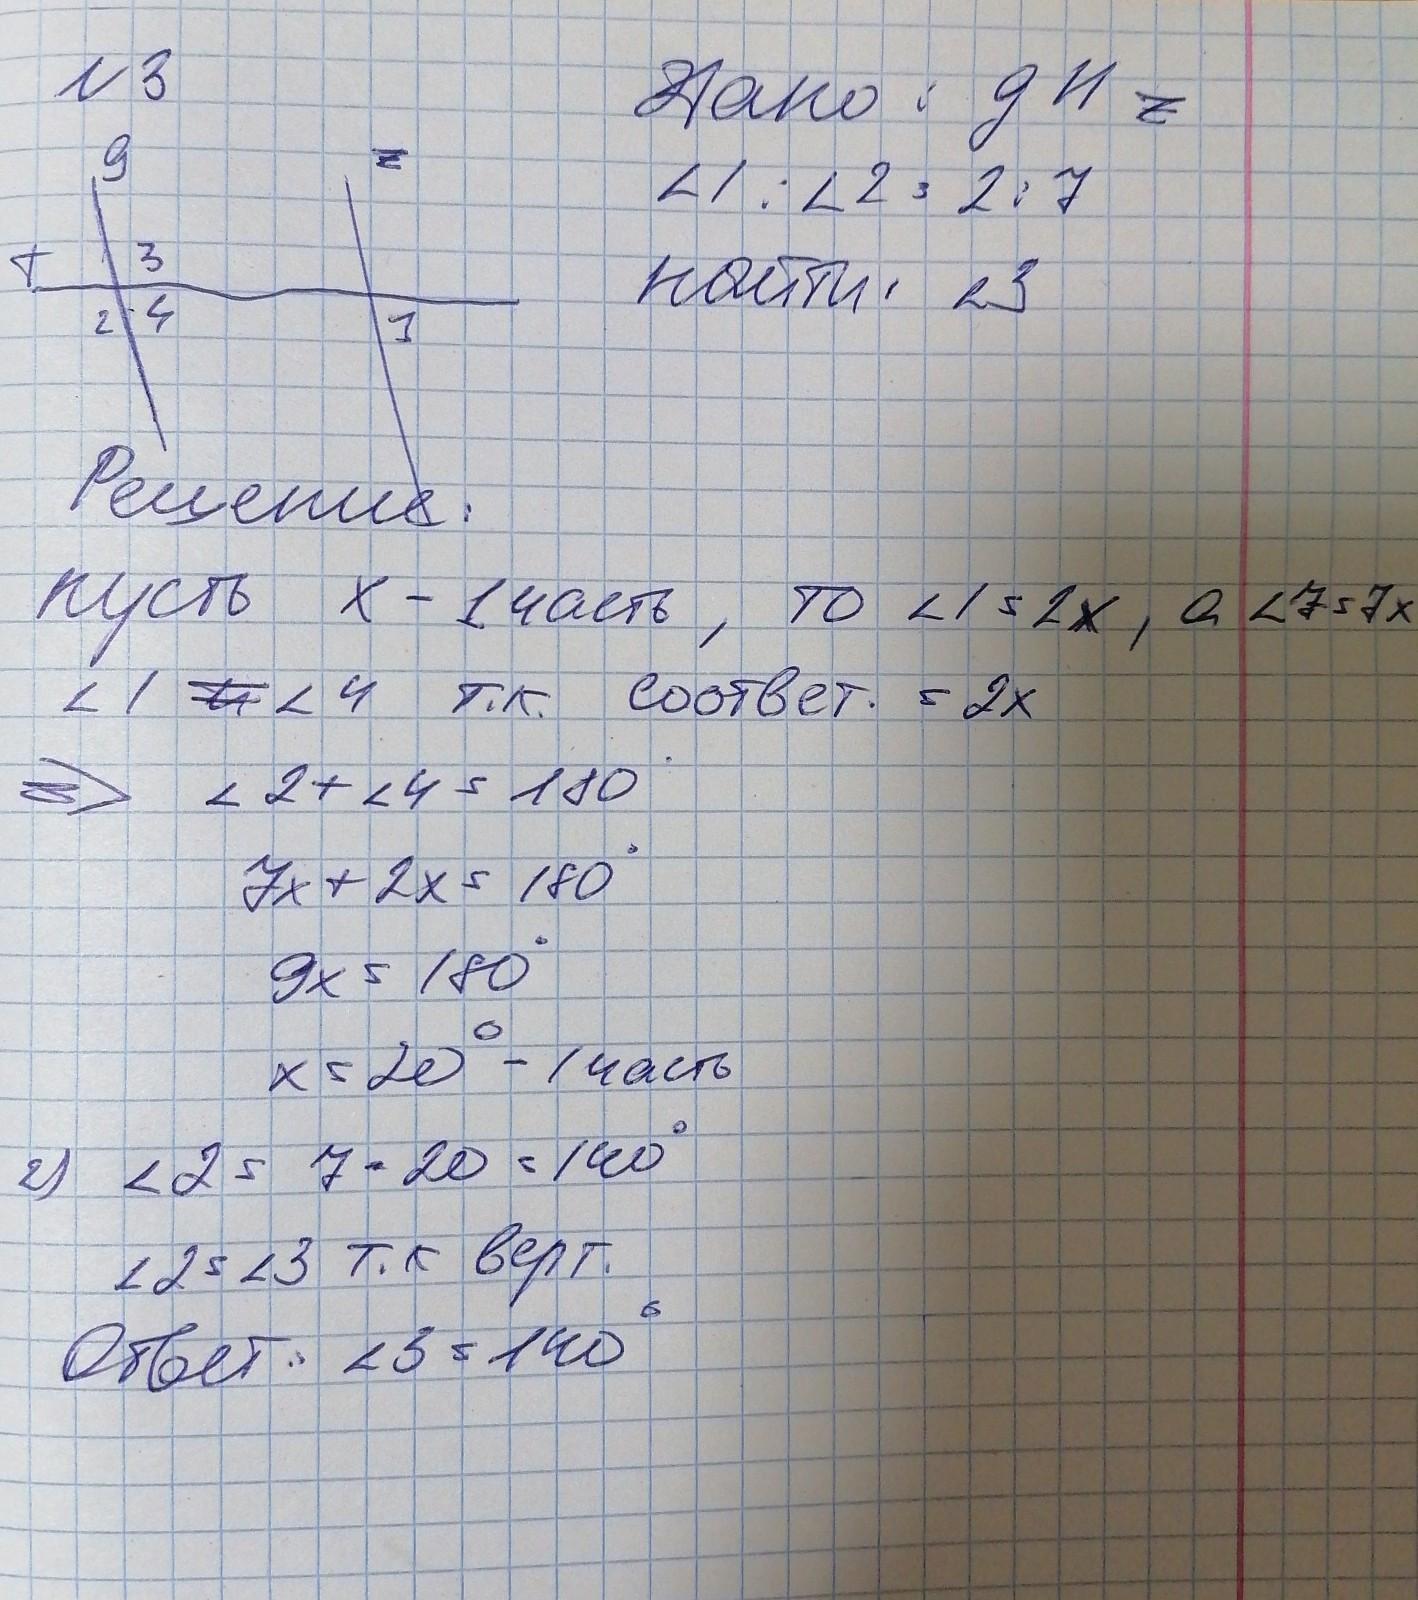 N3
Дано: g || z
∠1 : ∠2 = 2 : 7
найти: ∠3
g
z
T
3
2 4
1
Решение:
пусть x - 1 часть, то ∠1 = 2x, а ∠7 = 7x
∠1 = ∠4 т.к. соответ. = 2x
=> ∠2 + ∠4 = 180°
7x + 2x = 180°
9x = 180°
x = 20° - 1 часть
2) ∠2 = 7 · 20 = 140°
∠2 = ∠3 т.к верт.
Ответ: ∠3 = 140°